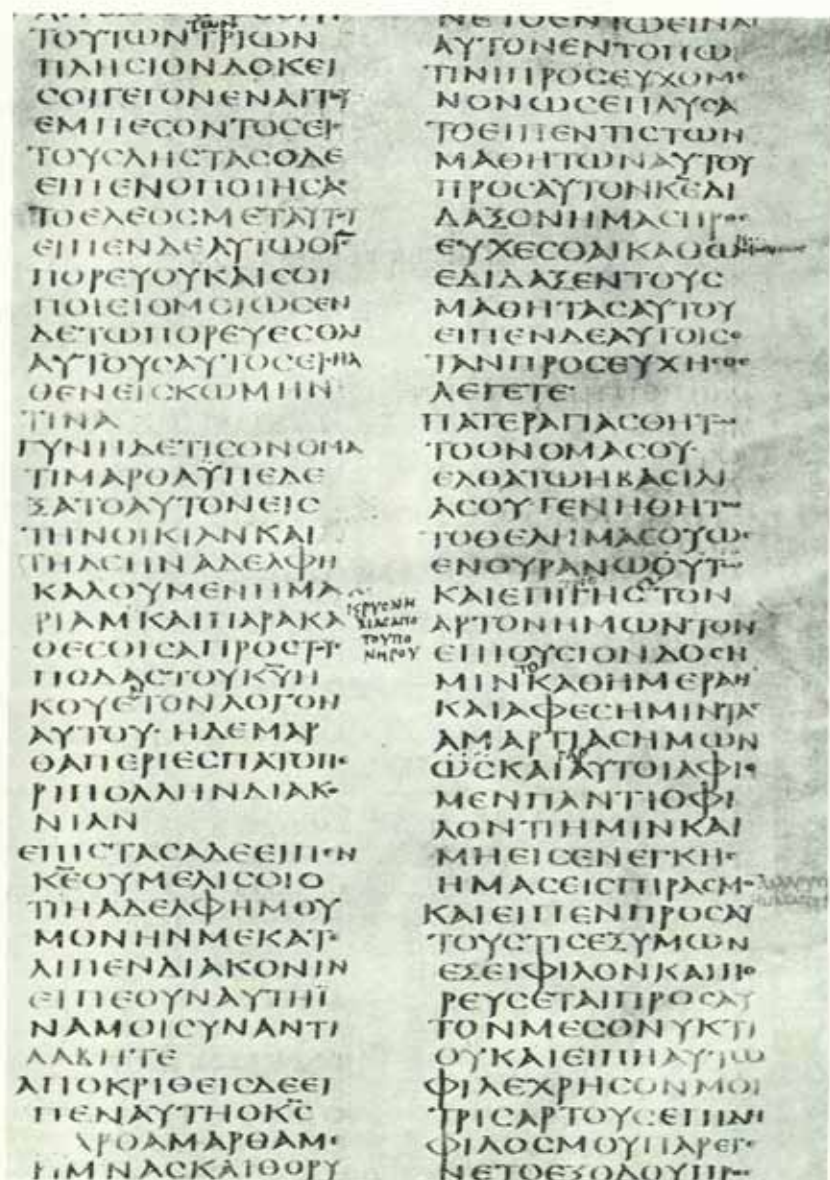 ΤΩΝ
ΤΟΥΤΩΝΤΡΙΩΝ
ΠΛΗCΙΟΝΔΟΚΕΙ
CΟΙΓΕΓΟΝΕΝΑΙΤΟΥ
ΕΜΠΕCΟΝΤΟCΕΙC
ΤΟΥCΛΗCΤΑCΟΔΕ
ΕΙΠΕΝΟΠΟΙΗCΑC
ΤΟΕΛΕΟCΜΕΤΑΥΤΟΥ
ΕΙΠΕΝΔΕΑΥΤΩΟΙ̅C̅
ΠΟΡΕΥΟΥΚΑΙCΟΙ
ΠΟΙΕΙΟΜΟΙΩCΕΝ
ΔΕΤΩΠΟΡΕΥΕCΘΑΙ
ΑΥΤΟΥCΑΥΤΟCΕΙCΗΛ
ΘΕΝΕΙCΚΩΜΗΝ
ΤΙΝΑ
ΓΥΝΗΔΕΤΙCΟΝΟΜΑ
ΤΙΜΑΡΘΑΫΠΕΔΕ
ΞΑΤΟΑΥΤΟΝΕΙC
ΤΗΝΟΙΚΙΑΝΚΑΙ
ΤΗΔΕΗΝΑΔΕΛΦΗ
ΚΑΛΟΥΜΕΝΗΜΑ
ΡΙΑΜΚΑΙΠΑΡΑΚΑ
ΘΕCΘΙCΑΠΡΟCΤΟΥC
ΠΟΔΑCΤΟΥΚ̅Υ̅Η
ΚΟΥΕΤΟΝΛΟΓΟΝ
ΑΥΤΟΥ·ΗΔΕΜΑΡ
ΘΑΠΕΡΙΕCΠΑΤΟΠΕ
ΡΙΠΟΛΛΗΝΔΙΑΚΟ
ΝΙΑΝ
ΕΠΙCΤΑCΑΔΕΕΙΠΕΝ
Κ̅Ε̅ΟΥΜΕΛΙCΟΙΟ
ΤΙΗΑΔΕΛΦΗΜΟΥ
ΜΟΝΗΝΜΕΚΑΤΕ
ΛΙΠΕΝΔΙΑΚΟΝΙΝ
ΕΙΠΕΟΥΝΑΥΤΗΪ
ΝΑΜΟΙCΥΝΑΝΤΙ
ΛΑΒΗΤΕ
ΑΠΟΚΡΙΘΕΙCΔΕΕΙ
ΠΕΝΑΥΤΗΟΚ̅C̅
ΜΑΡΘΑΜΑΡΘΑΜΕ
ΡΙΜΝΑCΚΑΙΘΟΡΥ
ΝΕΤΟΕΝΤΩΕΙΝΑΙ
ΑΥΤΟΝΕΝΤΟΠΩ
ΤΙΝΙΠΡΟCΕΥΧΟΜΕ
ΝΟΝΩCΕΠΑΥCΑ
ΤΟΕΙΠΕΝΤΙCΤΩΝ
ΜΑΘΗΤΩΝΑΥΤΟΥ
ΠΡΟCΑΥΤΟΝΚ̅Ε̅ΔΙ
ΔΑΞΟΝΗΜΑCΠΡΟC
ΕΥΧΕCΘΑΙΚΑΘΩC
ΕΔΙΔΑΞΕΝΤΟΥC
ΜΑΘΗΤΑCΑΥΤΟΥ
ΕΙΠΕΝΔΕΑΥΤΟΙCΟ
ΤΑΝΠΡΟCΕΥΧΗCΘΕ
ΛΕΓΕΤΕ·
ΠΑΤΕΡΑΓΙΑCΘΗΤΩ
ΤΟΟΝΟΜΑCΟΥ·
ΕΛΘΑΤΩΗΒΑCΙΛΙ
ΑCΟΥ·ΓΕΝΗΘΗΤΩ
ΤΟΘΕΛΗΜΑCΟΥΩC
ΕΝΟΥΡΑΝΩΟΥΤΩ
ΚΑΙΕΠΙΓΗCΤΟΝ
ΑΡΤΟΝΗΜΩΝΤΟΝ
ΕΠΙΟΥCΙΟΝΔΟCΗ
ΤΟ
ΜΙΝΚΑΘΗΜΕΡΑΝ
ΚΑΙΑΦΕCΗΜΙΝΤΑC
ΑΜΑΡΤΙΑCΗΜΩΝ
ΓΑΡ
ΩCΚΑΙΑΥΤΟΙΑΦΙΟ
ΜΕΝΠΑΝΤΙΟΦΙ
ΛΟΝΤΙΗΜΙΝΚΑΙ
ΜΗΕΙCΕΝΕΓΚΗC
ΗΜΑCΕΙCΠΙΡΑCΜΟ
ΚΑΙΕΙΠΕΝΠΡΟCΑΥ
ΤΟΥCΤΙCΕΞΥΜΩΝ
ΕΞΕΙΦΙΛΟΝΚΑΙΠΟ
ΡΕΥCΕΤΑΙΠΡΟCΑΥ
ΤΟΝΜΕCΟΝΥΚΤΙ
ΟΥΚΑΙΕΙΠΗΑΥΤΩ
ΦΙΛΕΧΡΗCΟΝΜΟΙ
ΤΡΙCΑΡΤΟΥCΕΠΙΔΗ
ΦΙΛΟCΜΟΥΠΑΡΕΓΕ
ΝΕΤΟΕΞΟΔΟΥΠΡΟC